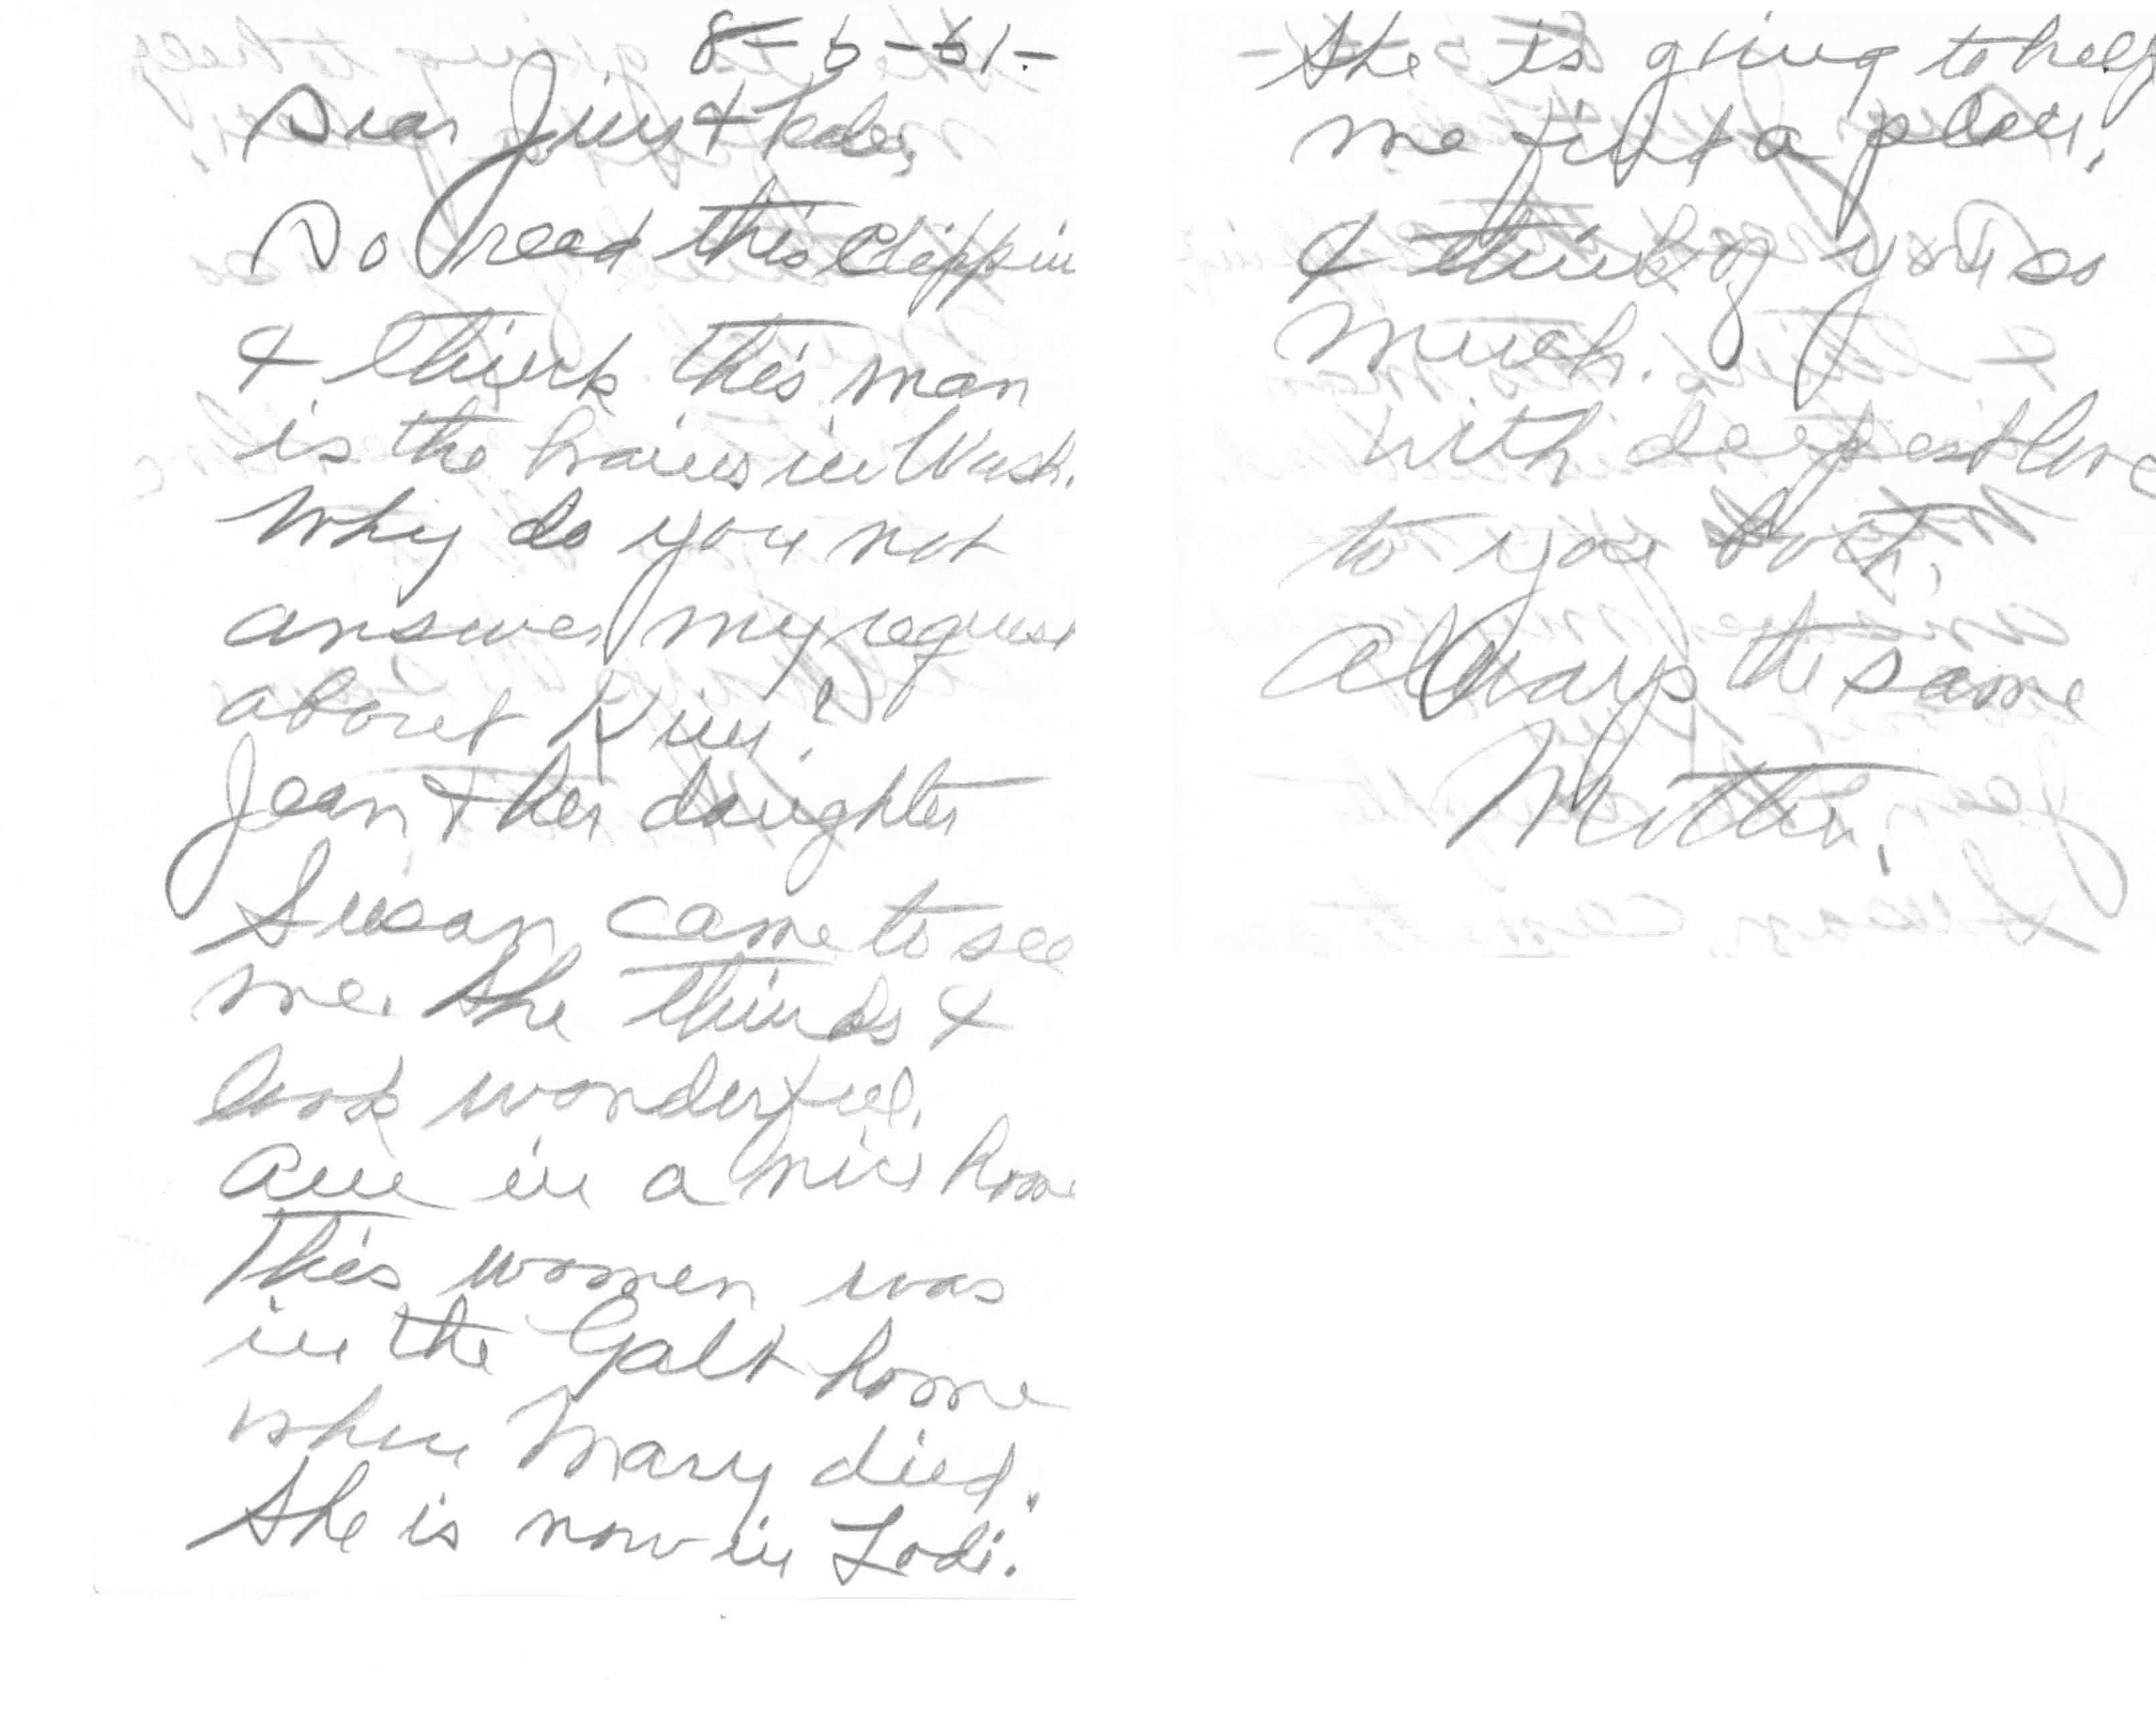 8-6-61-
Dear Jim &
Do read this clippin
& think this man
is the brains in Wash.
Why do you not
answer my request
about Kim?
Jean & her daughter
Susan, came to see
me. She thinks &
look wonderful.
Am in a nice home
This women was
in the Galt home
when Mary died.
She is now in Lodi.
She is going to help
me find a place.
& think of you so
much.
With deepest love
to you both,
always the same
Mother,